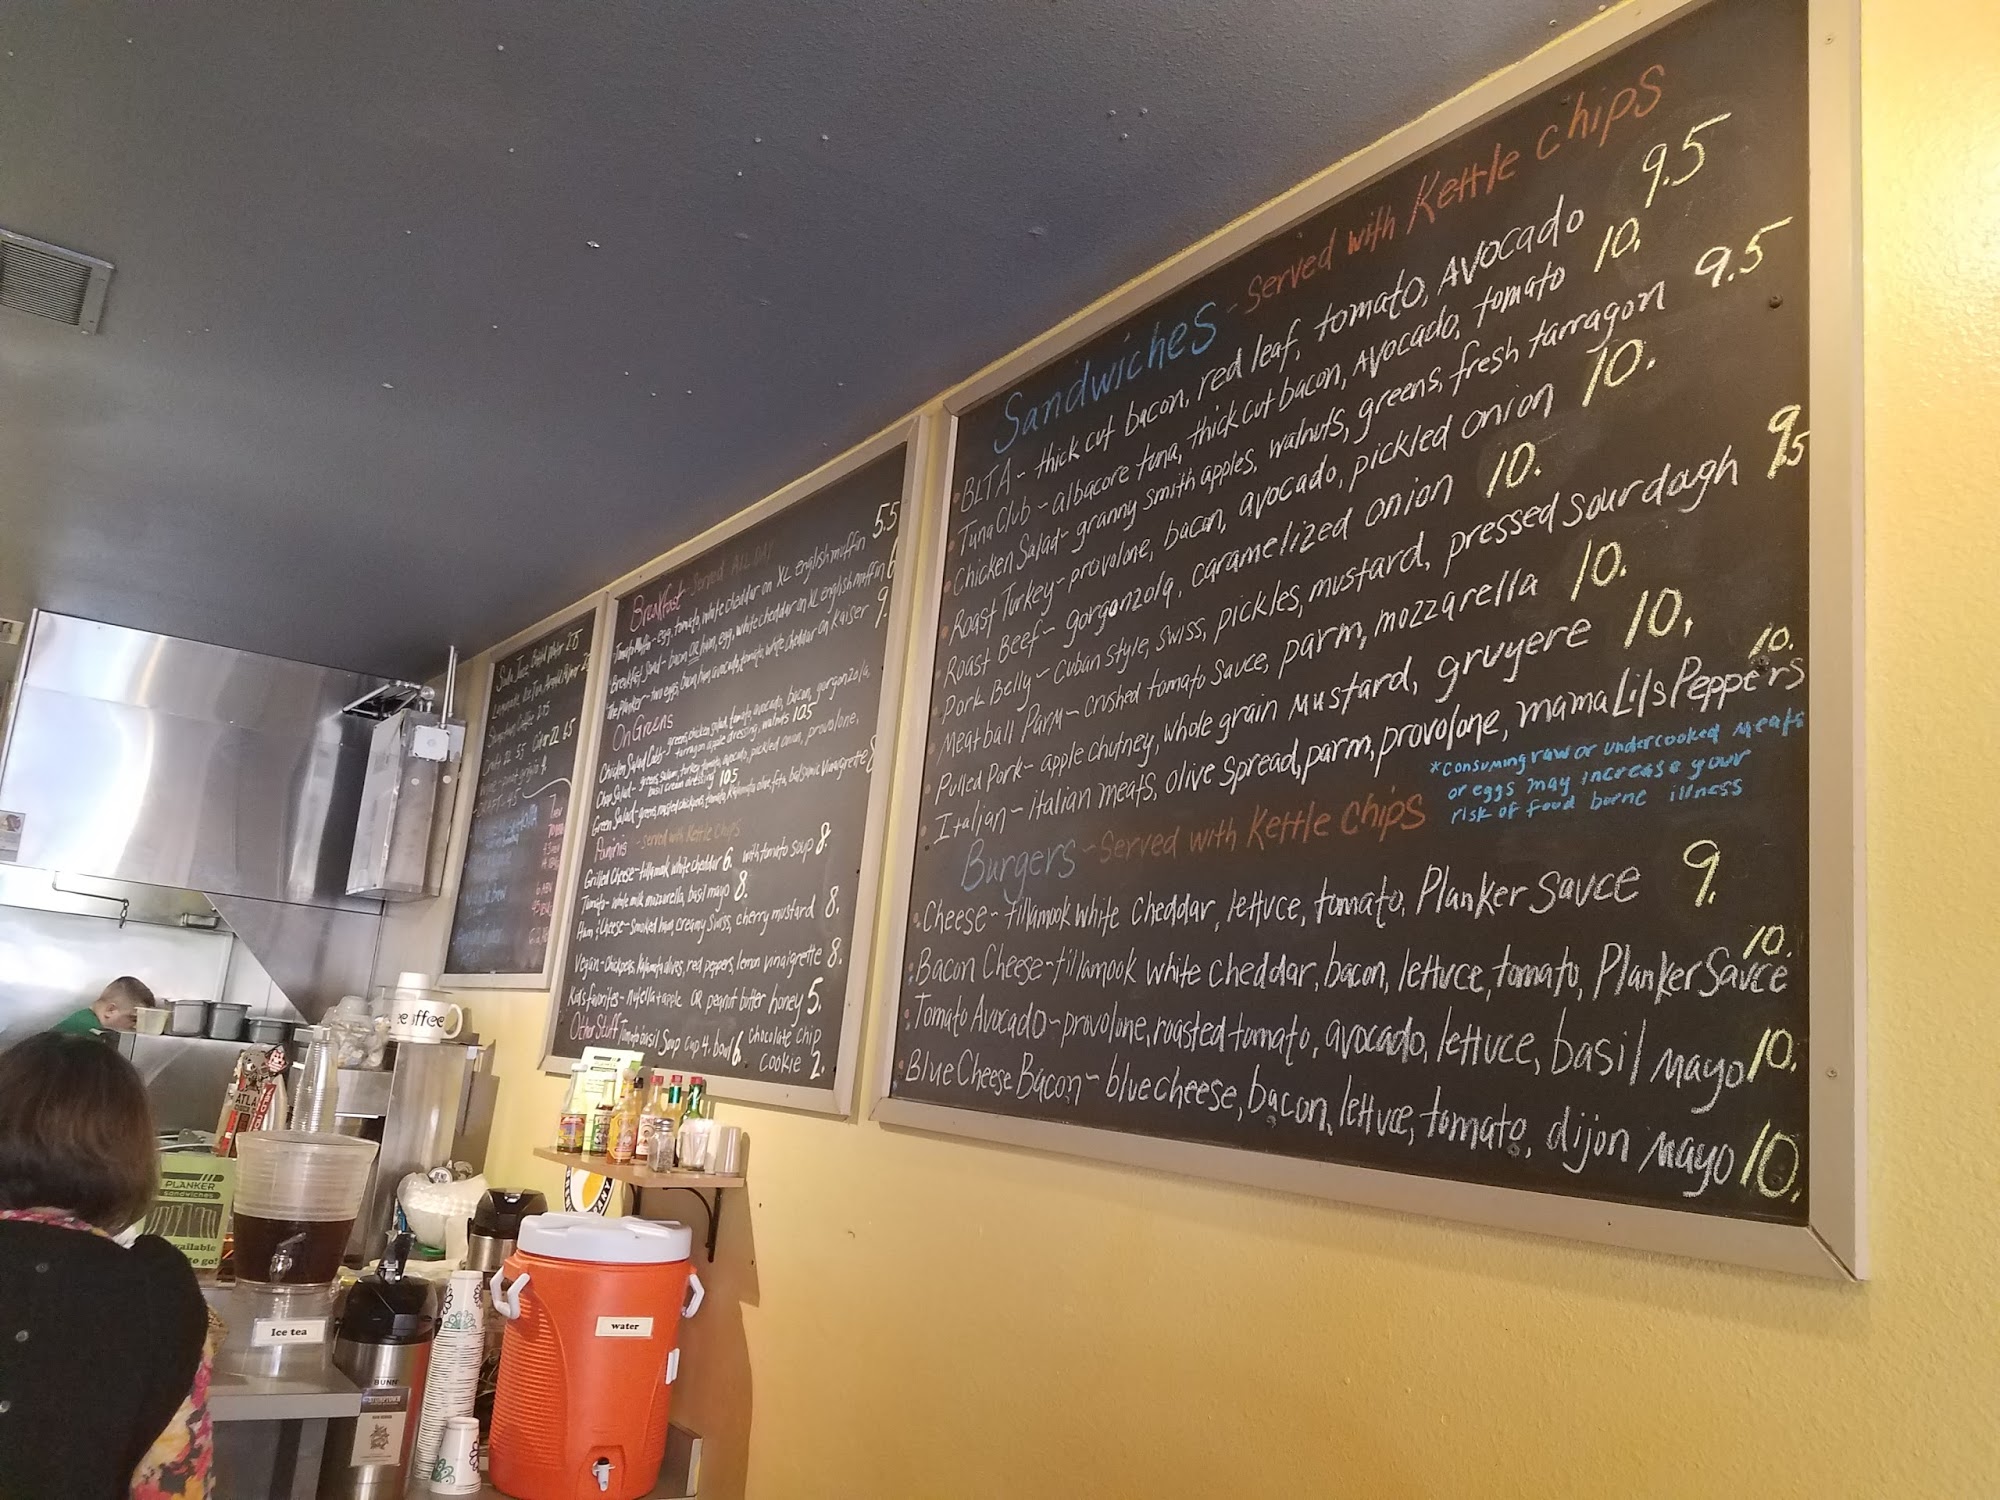 Sandwiches - Served with Kettle Chips
BLTA - thick cut bacon, red leaf, tomato, Avocado 9.5
Tuna Club - albacore tuna, thick cut bacon, Avocado, tomato 10.
Chicken Salad - granny smith apples, walnuts, greens, fresh tarragon 9.5
Roast Turkey - provolone, bacon, avocado, pickled onion 10.
Roast Beef - gorgonzola, caramelized onion 10.
Pork Belly - Cuban style, swiss, pickles, mustard, pressed sourdough 9.5
Meatball Parm - crushed tomato sauce, parm, mozzarella 10.
Pulled Pork - apple chutney, whole grain mustard, gruyere 10.
Italian - italian meats, olive spread, parm, provolone, mama Lils Peppers 10.
*consuming raw or undercooked meats
or eggs may increase your
risk of food borne illness
Burgers - Served with Kettle Chips
Cheese - tillamook white cheddar, lettuce, tomato, Planker Sauce 9.
Bacon Cheese - tillamook white cheddar, bacon, lettuce, tomato, Planker Sauce 10.
Tomato Avocado - provolone, roasted tomato, avocado, lettuce, basil mayo 10.
Blue Cheese Bacon - blue cheese, bacon, lettuce, tomato, dijon mayo 10.
Breakfast - Served ALL DAY
Tomato Muffin - egg, tomato, white cheddar on XL english muffin 5.5
Breakfast Sand - bacon OR ham, egg, white cheddar on XL english muffin 6
The Planker - two eggs, bacon, ham, avocado, tomato, white cheddar on Kaiser 9.
On Greens
Chicken Salad Cobb - greens, chicken salad, tomato, avocado, bacon, gorgonzola,
tarragon apple dressing, walnuts 10.5
Chop Salad - greens, salami, turkey, tomato, avocado, pickled onion, provolone,
basil cream dressing 10.5
Green Salad - greens, roasted chickpeas, tomato, Kalamata olive, feta, balsamic vinaigrette 8
Paninis - served with Kettle Chips
Grilled Cheese - tillamook white cheddar 6. with tomato soup 8.
Tomato - whole milk mozzarella, basil mayo 8.
Ham & Cheese - smoked ham, creamy swiss, cherry mustard 8.
Vegan - chickpeas, Kalamata olives, red peppers, lemon vinaigrette 8.
Kids favorites - nutella + apple OR peanut butter honey 5.
Other Stuff Tomato basil Soup cup 4. bowl 6. chocolate chip
cookie 2.
PLANKER
sandwiches
to go!
Ice tea
BUNN
water